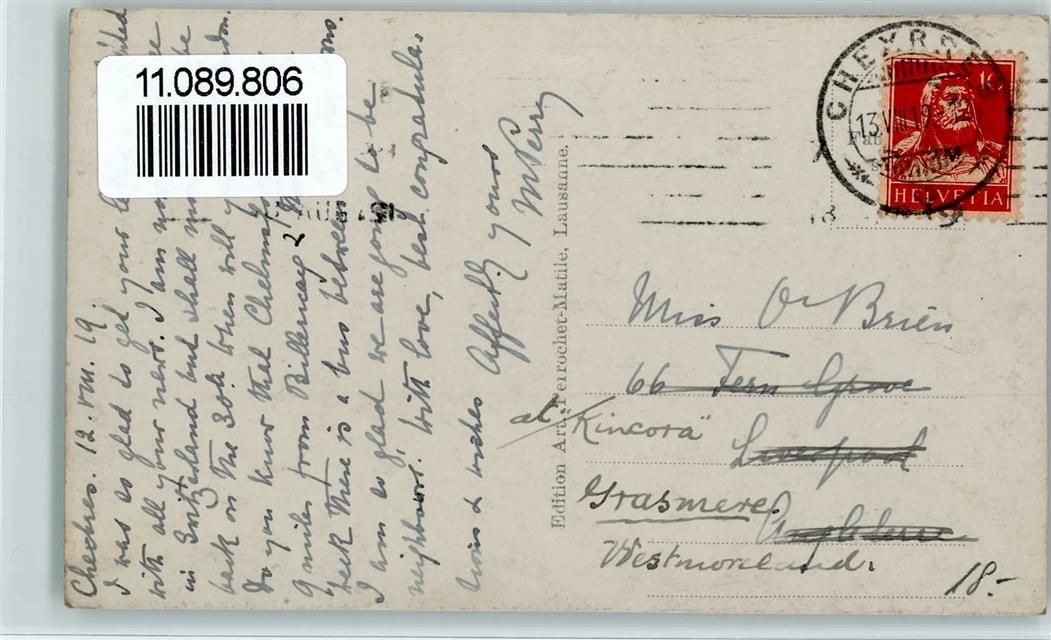 11.089.806
Chexbres. 12. VIII. 19.
I was so glad to get your
with all your news. I am
in Switzerland but shall
back on the 30th. When will
Do you know that Chelmsf
9 miles from Billericay &
week there is a bus between
I am so glad we are going to be
neighbours. With love, best congratula.
tions & wishes
Affectly yours
M Perry
Edition Art. Perrochet-Matile, Lausanne.
CHEXBRES
13.VIII.19
10
HELVETIA
Miss O'Brien
66 Fern Grove
at "Kincora"
Liverpool
Grasmere.
Angleterre
Westmoreland.
18.-